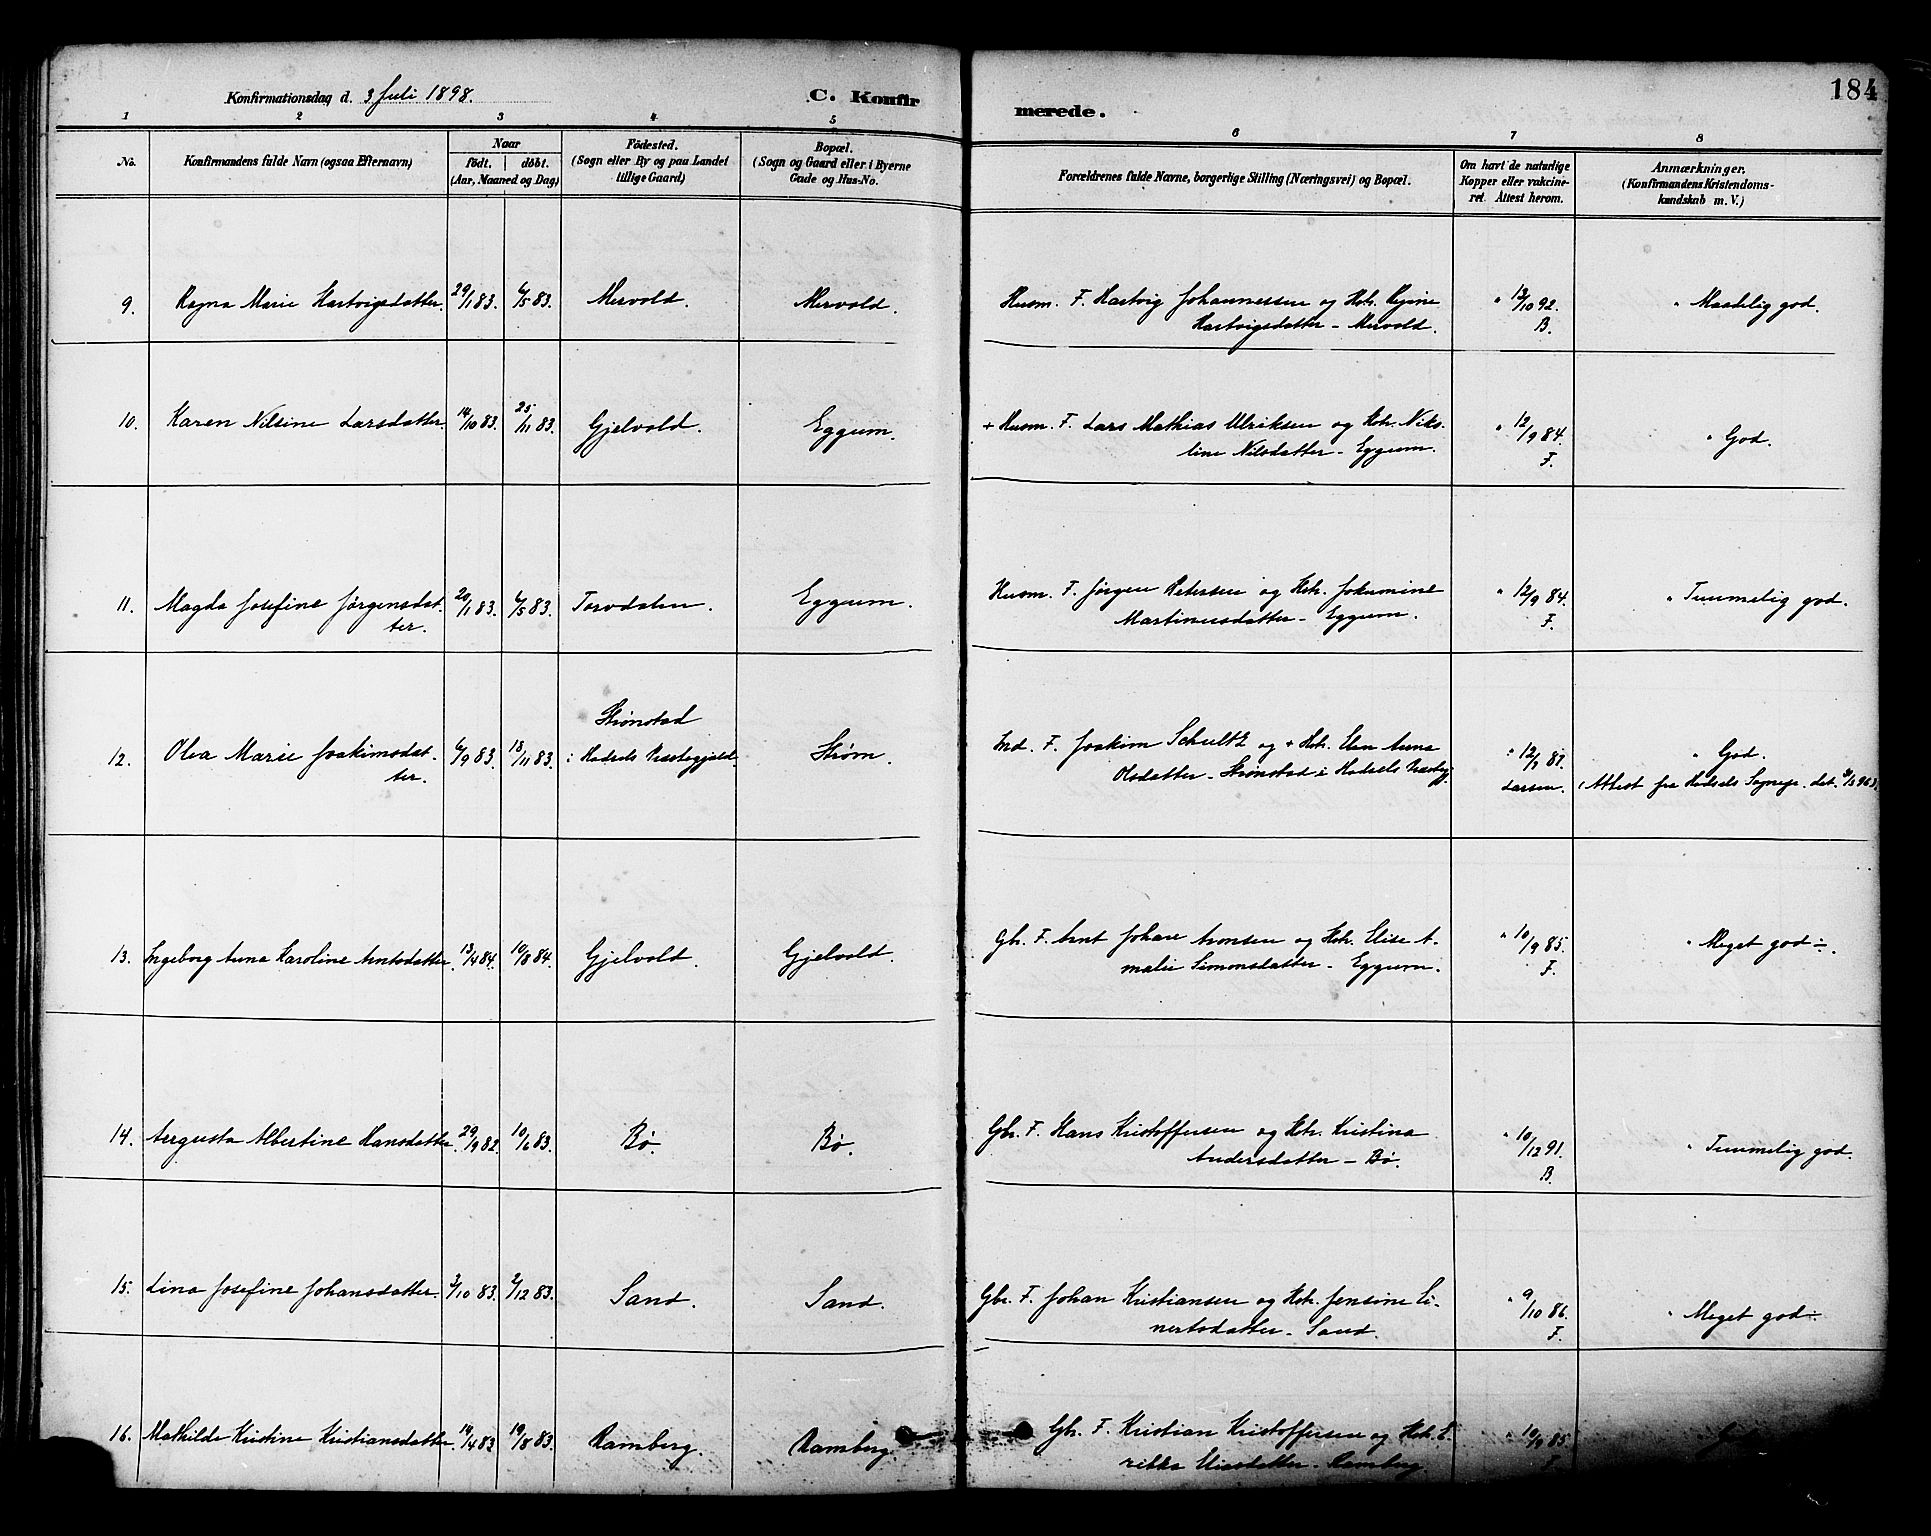 184
Konfirmationsdag d. 3 Juli 1898.
C. Konfirmerede.
1 2 3 4 5 6 7 8
No.
Konfirmandens fulde Navn (ogsaa Efternavn)
Naar
født. døbt.
(Aar, Maaned og Dag)
Födested.
(Sogn eller By og paa Landet
tillige Gaard)
Bopæl.
(Sogn og Gaard eller i Byerne
Gade og Hus-No.
Forældrenes fulde Navne, borgerlige Stilling (Næringsvei) og Bopæl.
Om havt de naturlige
Kopper eller vakcine-
ret. Attest herom.
Anmærkninger.
(Konfirmandens Kristendoms-
kundskab m. V.)
9. Ragna Marie Hartvigsdatter. 29/1 83. 6/5 83. Mervold. Mervold. Husm. F. Hartvig Johannessen og Hstr. Regine " 12/10 92. " Maadelig god.
Hartvigsdatter - Mervold. B.
10. Karen Nilsine Larsdatter. 14/10 83. 25/11 83. Gjelvold. Eggum. + Husm. F. Lars Mathias Ulriksen og Hstr. Nik- " 12/9 84. " God.
line Nilsdatter - Eggum. F.
11. Magda Josefine Jørgensdat- 20/1 83. 6/5 83. Torvdalen. Eggum. Husm. F. Jørgen Petersen og Hstr. Jokumine " 12/9 84. " Temmelig god.
ter. Martinusdatter - Eggum. F.
Strønstad
12. Olea Marie Joakimsdat- 6/9 83. 18/11 83. i Hadsels Præstegjeld. Strøm. Ind. F. Joakim Schultz og + Hstr. Elen Anna " God.
ter. Olsdatter - Strønstad i Hadsels Præstegj. Larsen. (Attest fra Hadsels Sognep. dat.
13. Ingeborg Anna Karoline Arntsdatter. 13/4 84. 10/8 84. Gjelvold. Gjelvold. Gbr. F. Arnt Johan Aronsen og Hstr. Elise A- " 10/9 85. " Meget god ÷.
malie Simonsdatter - Eggum. F.
14. Augusta Albertine Hansdatter. 29/9 82. 10/6 83. Bø. Bø. Gbr. F. Hans Kristoffersen og Hstr. Kristina " 10/12 91. " Temmelig god.
Andersdatter - Bø. B.
15. Lina Josefine Johansdatter. 3/10 83. 2/12 83. Sand. Sand. Gbr. F. Johan Kristiansen og Hstr. Jensine Li- " 9/10 86. " Meget god ÷.
nertsdatter - Sand. F.
16. Mathilde Kristine Kristiansdatter. 14/4 83. 19/8 83. Ramberg. Ramberg. Gbr. F. Kristian Kristoffersen og Hstr. E- " 10/9 85
rikka - Ramberg.